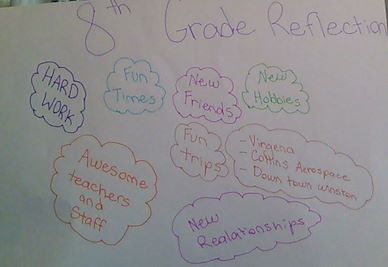 8th Grade Reflection
HARD
WORK
Fun
Times
New
Friends
New
Hobbies
Fun
trips
- Virgena
- Collins Aerospace
- Down town winston
Awesome
teachers
and
Staff
New
Realationships